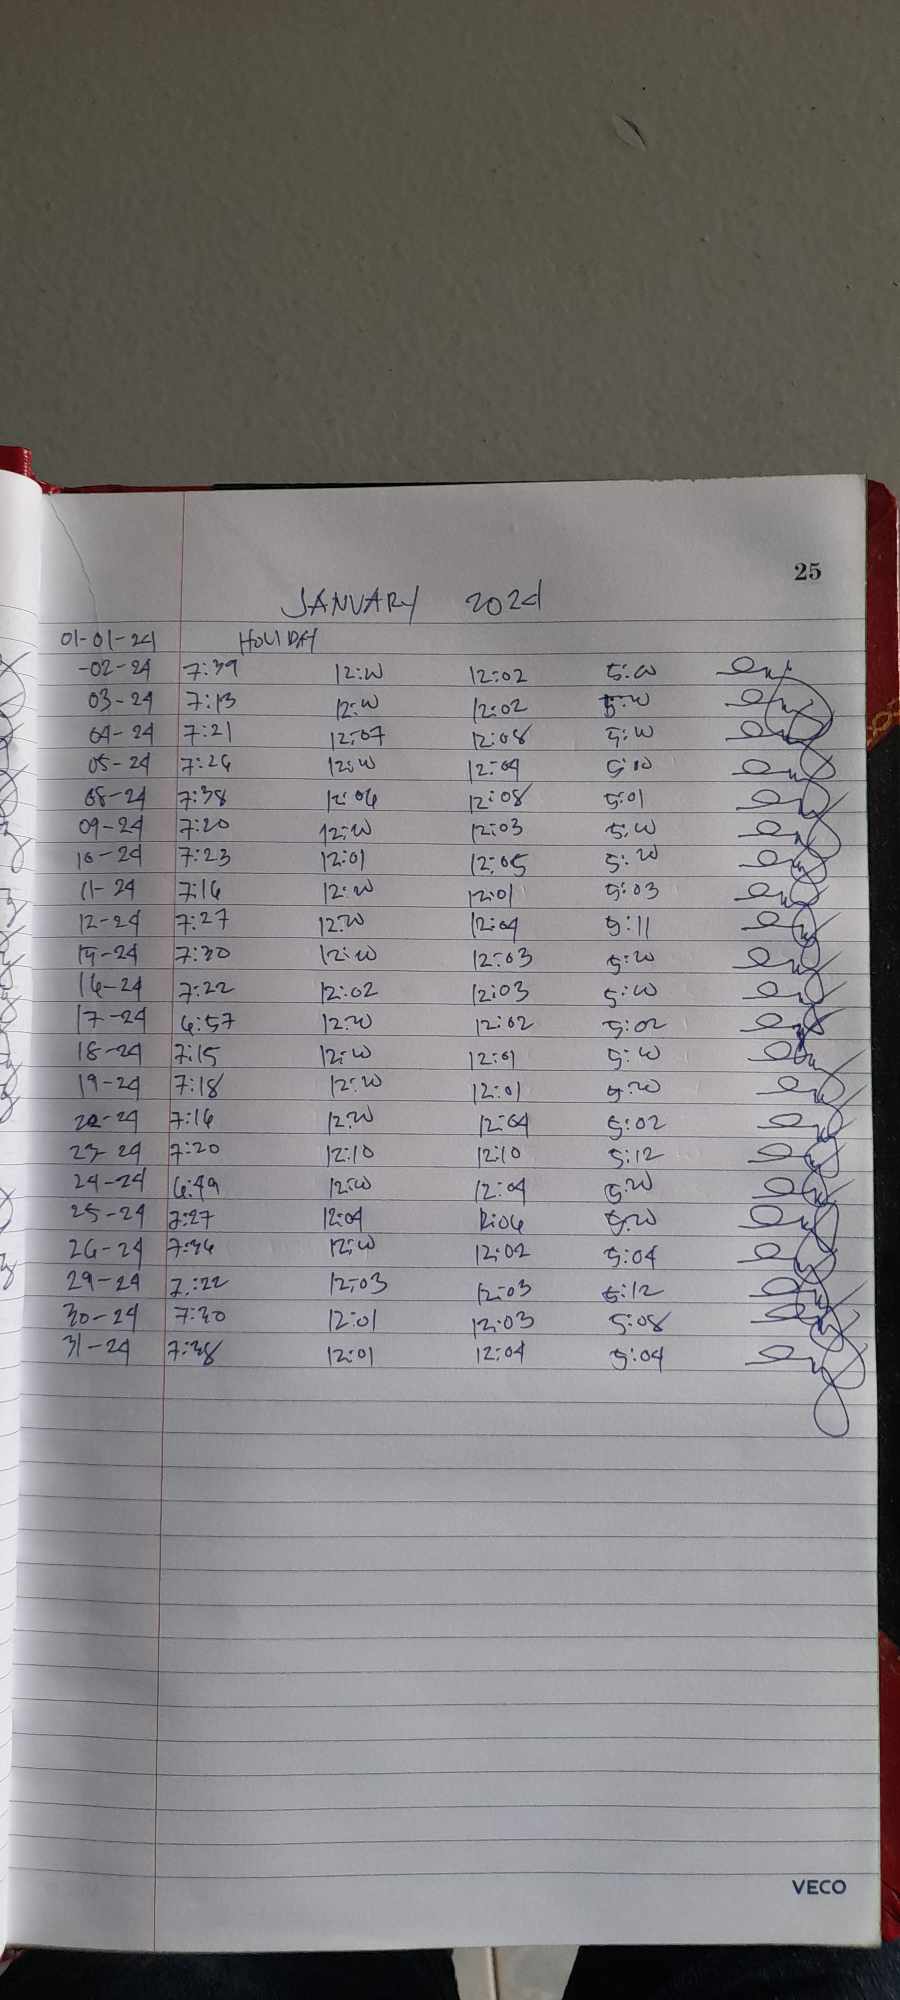 25
JANUARY 2024
01-01-24 HOLIDAY
-02-24 7:39 12:00 12:02 5:00
03-24 7:13 12:00 12:02 5:00
04-24 7:21 12:07 12:08 5:00
05-24 7:26 12:00 12:04 5:00
08-24 7:38 12:06 12:08 5:01
09-24 7:20 12:00 12:03 5:00
10-24 7:23 12:01 12:05 5:00
11-24 7:16 12:00 12:01 5:03
12-24 7:27 12:00 12:04 5:11
15-24 7:30 12:00 12:03 5:00
16-24 7:22 12:02 12:03 5:00
17-24 6:57 12:00 12:02 5:02
18-24 7:15 12:00 12:01 5:00
19-24 7:18 12:00 12:01 5:00
22-24 7:16 12:00 12:04 5:02
23-24 7:20 12:10 12:10 5:12
24-24 6:49 12:00 12:04 5:00
25-24 7:27 12:04 12:06 5:00
26-24 7:36 12:00 12:02 5:04
29-24 7:22 12:03 12:03 5:12
30-24 7:30 12:01 12:03 5:08
31-24 7:38 12:01 12:04 5:04
VECO